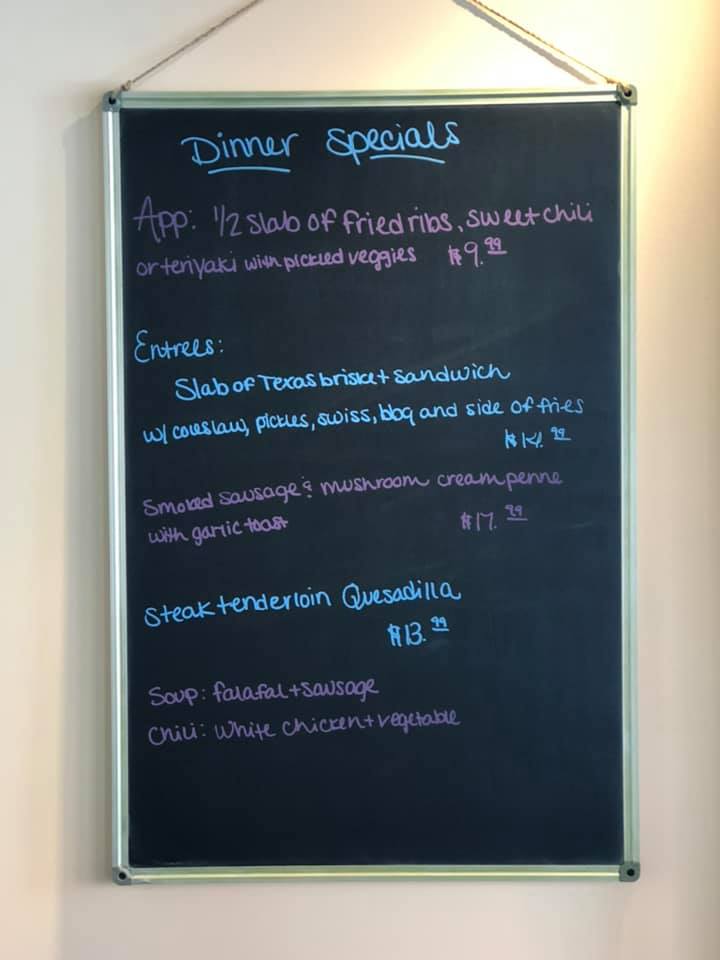 Dinner Specials
App: 1/2 slab of fried ribs, sweet chili
or teriyaki with pickled veggies $9.99
Entrees:
Slab of Texas brisket sandwich
w/ coleslaw, pickles, swiss, bbq and side of fries
$14.99
Smoked sausage & mushroom cream penne
with garlic toast $17.99
Steak tenderloin Quesadilla
$13.99
Soup: falafal + sausage
Chili: White chicken + vegetable